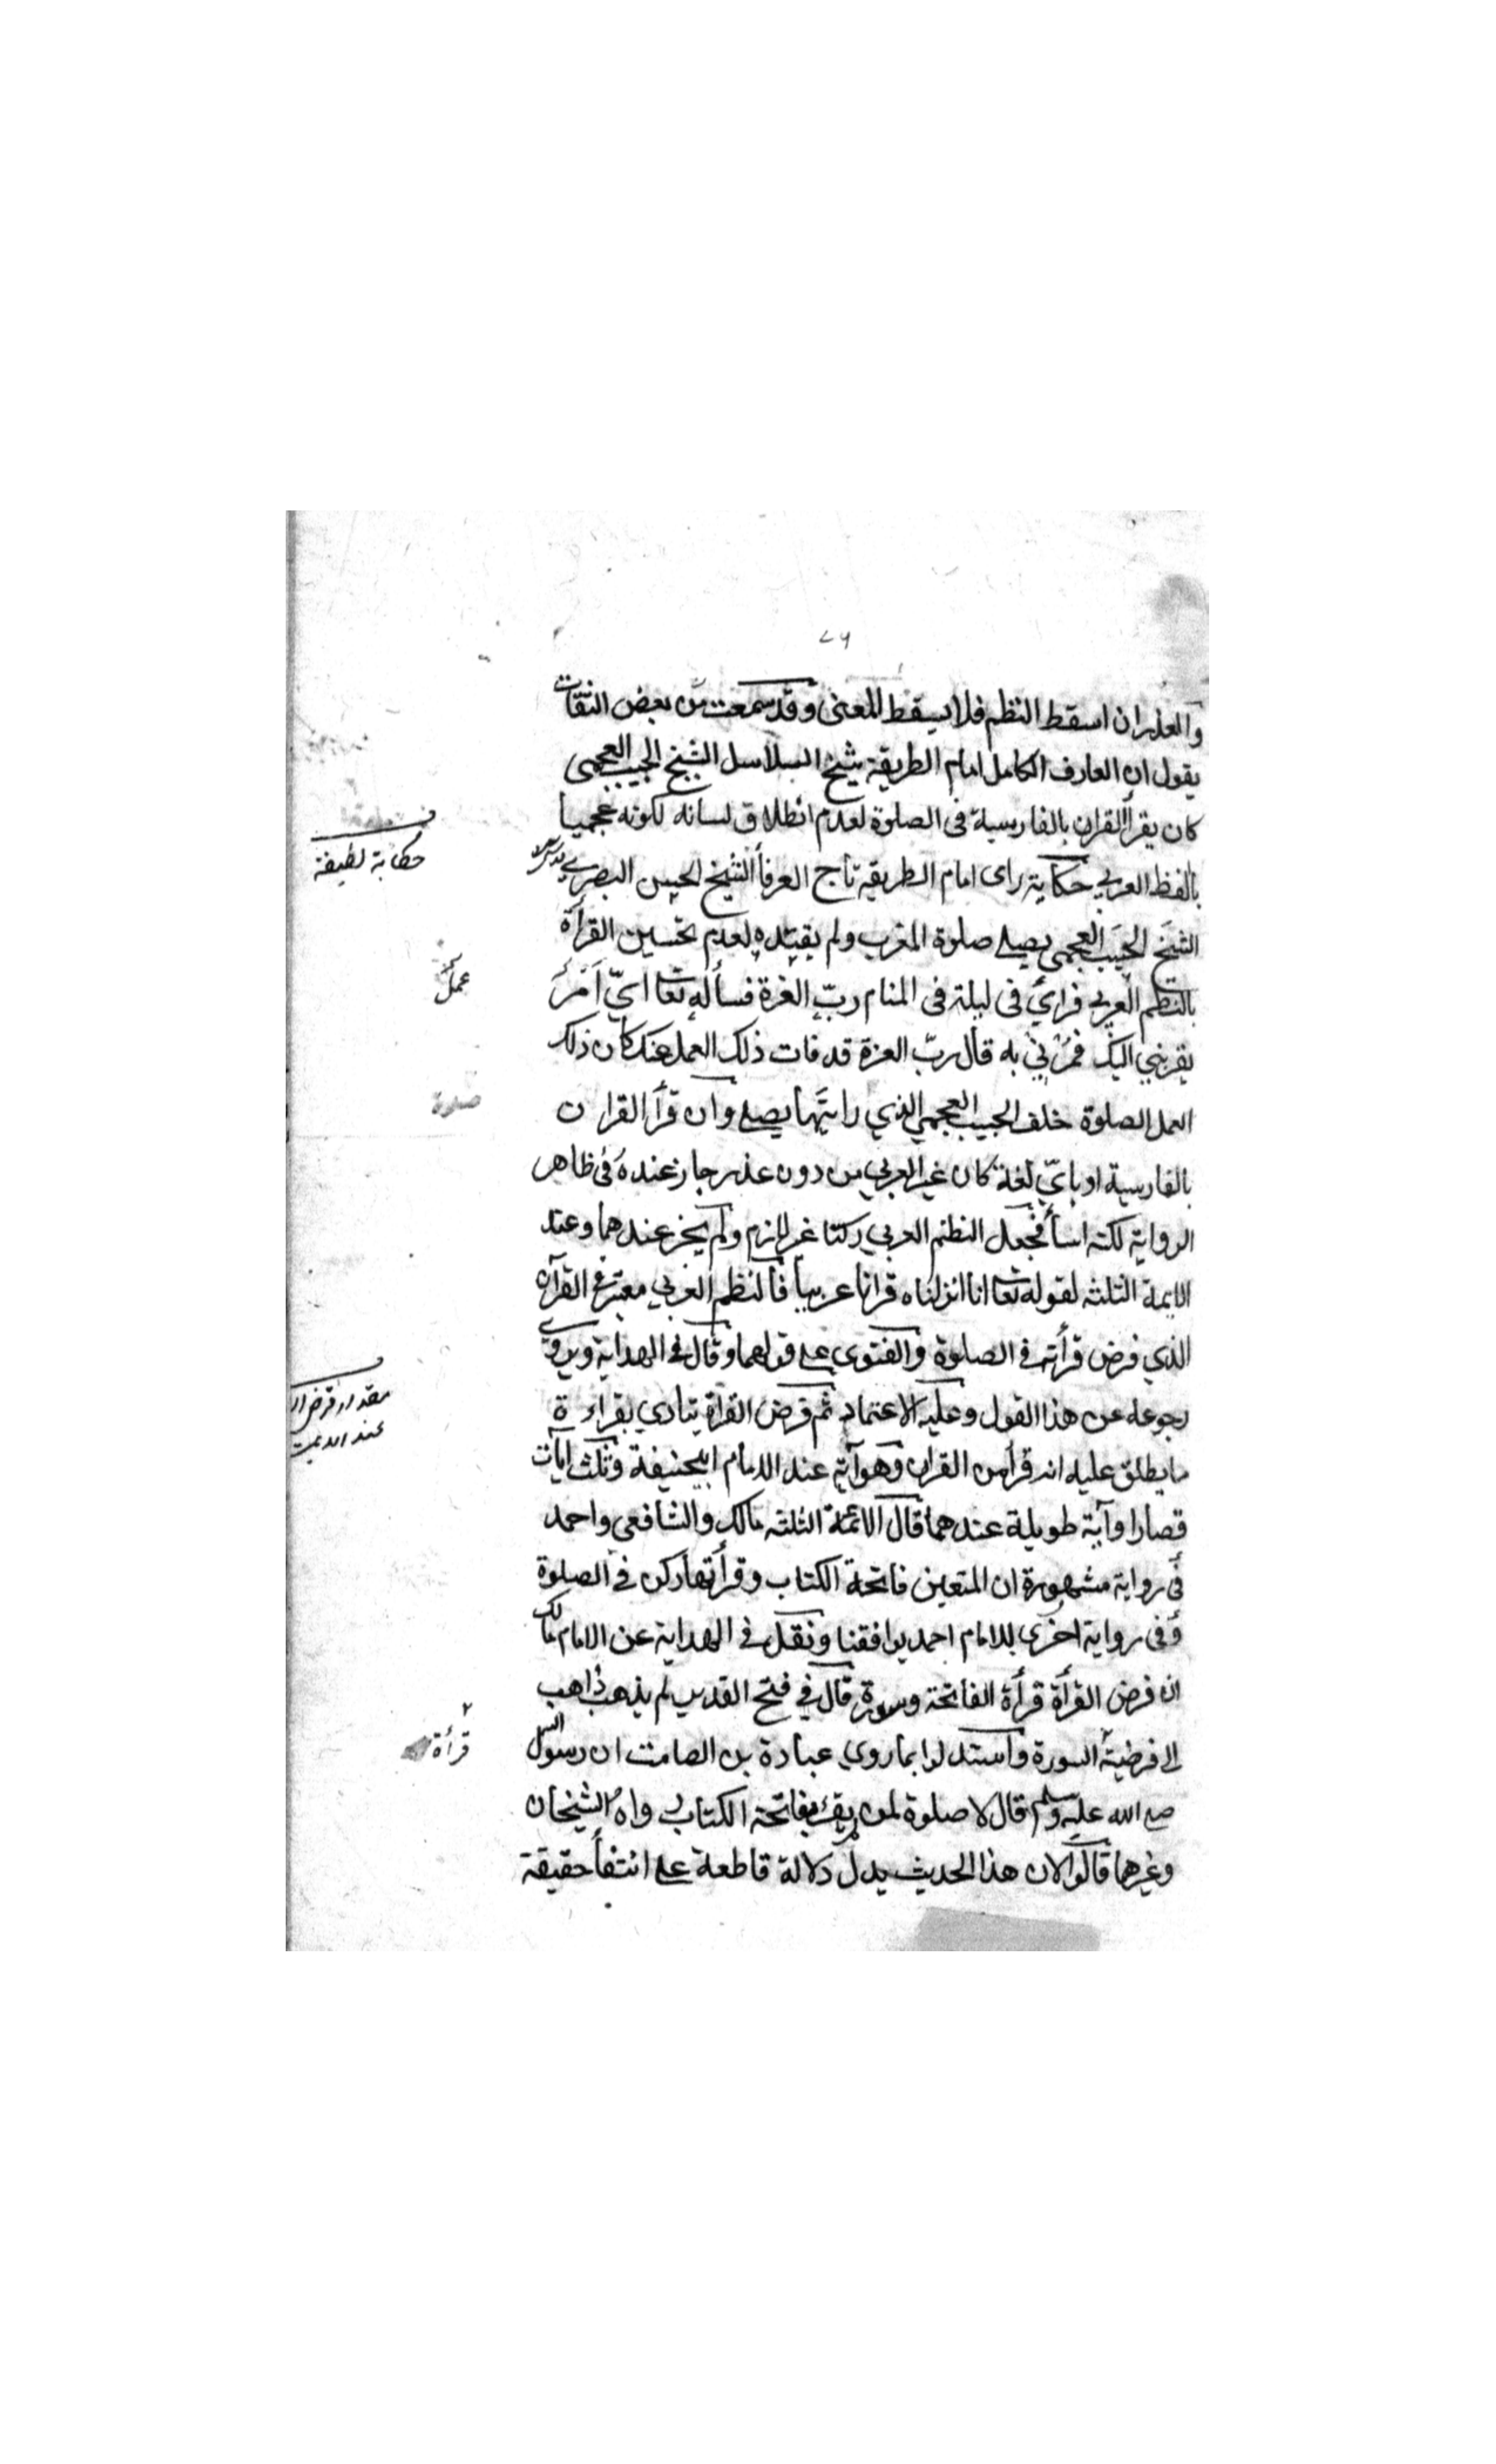 ٧٩
والعذر ان اسقط النظم فلا يسقط المعنى وقد سمعت من بعض الثقات
يقول ان العارف الكامل امام الطريقة شيخ السلاسل الشيخ الحبيب العجمي
كان يقرأ القران بالفارسية في الصلوة لعدم انطلاق لسانه لكونه عجميا
حكاية لطيفة
بالفظ العربي حكاية راى امام الطريقه تاج العرفأ الشيخ الحسن البصري
الشيخ الحبيب العجمي يصلي صلوة المغرب ولم يقتده لعدم تحسين القرأة
بالنظم العربي فرائ في ليلة في المنام ربّ العزة فسأله تعا ايّ أمرٍ
عمل
يقربني اليك فمُرْنِيْ به قال ربّ العزة قد فات ذلك العمل عنك كان ذلك
العمل الصلوة خلف الحبيب العجمي الذي رايتها يصلي وان قرأ القران
صلوة
بالفارسية او بايّ لغة كان غير العربي من دون عذر جاز عنده في ظاهر
الرواية لكنه اسأ فجعل النظم العربي ركنا غير لازم ولم يجز عندهما وعند
الايمة الثلثه لقوله تعا انا انزلناه قرانا عربيا فالنظم العربي معتبر في القرآن
الذي فرض قرأته في الصلوة والفتوى على قولهما وقال في الهداية ويروى
رجوعه عن هذا القول وعليه الاعتماد ثم فرض القرأة يتادي بقراءة
مقدار فرض
عند
ما يطلق عليه انه قرأ من القران وهو آية عند الامام ابيحنيفة وثلث آيات
قصار او آية طويلة عندهما قال الائمة الثلثه مالك والشافعي واحمد
في رواية مشهورة ان المتعين فاتحة الكتاب وقرأتها ركن في الصلوة
وفي رواية اخرى للامام احمد يوافقنا ونقل في الهداية عن الامام مالك
ان فرض القرأة قرأة الفاتحة وسورة قال في فتح القدير لم يذهب ذاهب
الى فرضية السورة واستدلوا بما روي عبادة بن الصامت ان رسول الله
قرأة
صلى الله عليه وسلم قال لا صلوة لمن لم يقرء بفاتحة الكتاب رواه الشيخان
وغيرهما قالوا لان هذا الحديث يدل دلالة قاطعة على انتفأ حقيقة